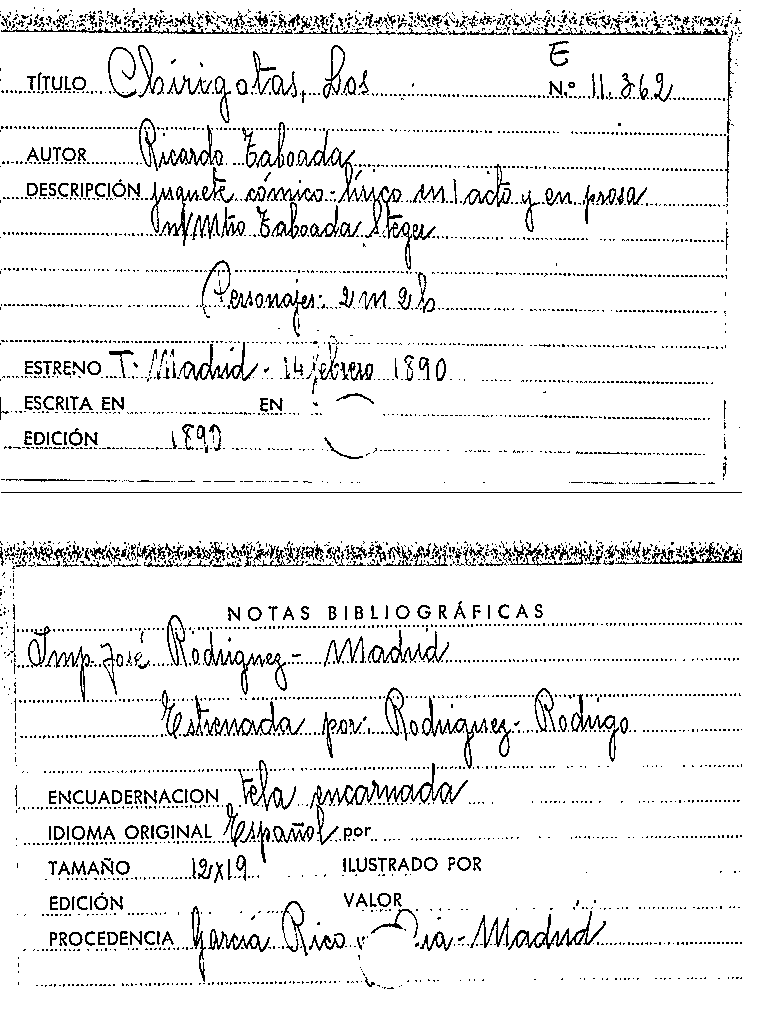 E
TÍTULO Chirigotas, Los N.º 11.362
AUTOR Ricardo Taboada
DESCRIPCIÓN juguete cómico-lírico en 1 acto y en prosa
Mtro Taboada Steger
Personajes: 2 m 2 h
ESTRENO T. Madrid - 14 febrero 1890
ESCRITA EN EN
EDICIÓN 1890
NOTAS BIBLIOGRÁFICAS
Imp. José Rodriguez - Madrid
Estrenada por: Rodriguez - Rodrigo
ENCUADERNACION tela encarnada
IDIOMA ORIGINAL Español por
TAMAÑO 12x19 ILUSTRADO POR
EDICIÓN VALOR
PROCEDENCIA García Rico y - Madrid